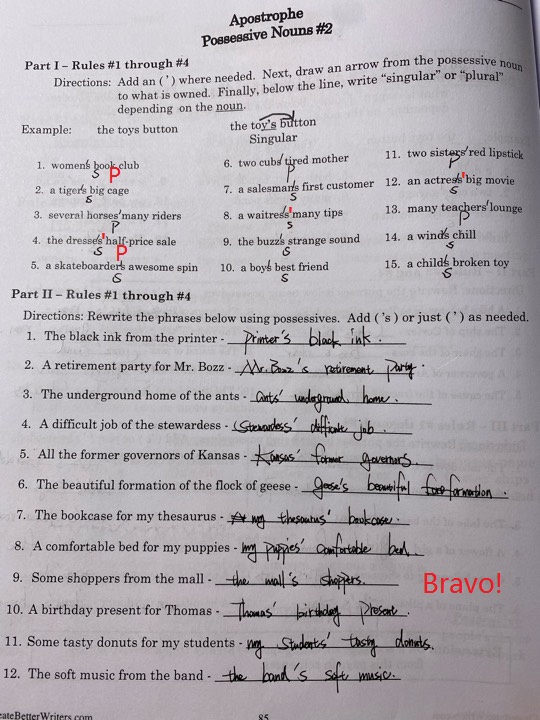 Apostrophe
Possessive Nouns #2
Part I – Rules #1 through #4
Directions: Add an ( ' ) where needed. Next, draw an arrow from the possessive noun
to what is owned. Finally, below the line, write "singular" or "plural"
depending on the noun.
Example: the toys button the toy's button
Singular
1. women's book club
S P
2. a tiger's big cage
S
3. several horses' many riders
P
4. the dresses' half-price sale
S P
5. a skateboarder's awesome spin
S
6. two cubs' tired mother
P
7. a salesman's first customer
S
8. a waitress' many tips
S
9. the buzz's strange sound
S
10. a boy's best friend
S
11. two sisters' red lipstick
P
12. an actress' big movie
S
13. many teachers' lounge
P
14. a wind's chill
S
15. a child's broken toy
S
Part II – Rules #1 through #4
Directions: Rewrite the phrases below using possessives. Add ( 's ) or just ( ' ) as needed.
1. The black ink from the printer - printer's black ink.
2. A retirement party for Mr. Bozz - Mr. Bozz's retirement party.
3. The underground home of the ants - ants' underground home.
4. A difficult job of the stewardess - Stewardess' difficult job.
5. All the former governors of Kansas - Kansas' former governors.
6. The beautiful formation of the flock of geese - geese's beautiful formation.
7. The bookcase for my thesaurus - my thesaurus' bookcase.
8. A comfortable bed for my puppies - my puppies' comfortable bed.
9. Some shoppers from the mall - the mall's shoppers. Bravo!
10. A birthday present for Thomas - Thomas' birthday present.
11. Some tasty donuts for my students - my students' tasty donuts.
12. The soft music from the band - the band's soft music.
eateBetterWriters.com 85